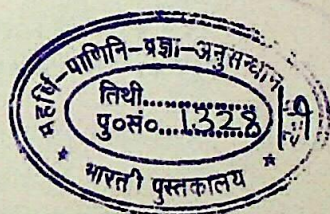 महर्षि-पाणिनि-प्रज्ञा-अनुसन्धान
तिथी..................
पु०सं०....1328....
भारती पुस्तकालय